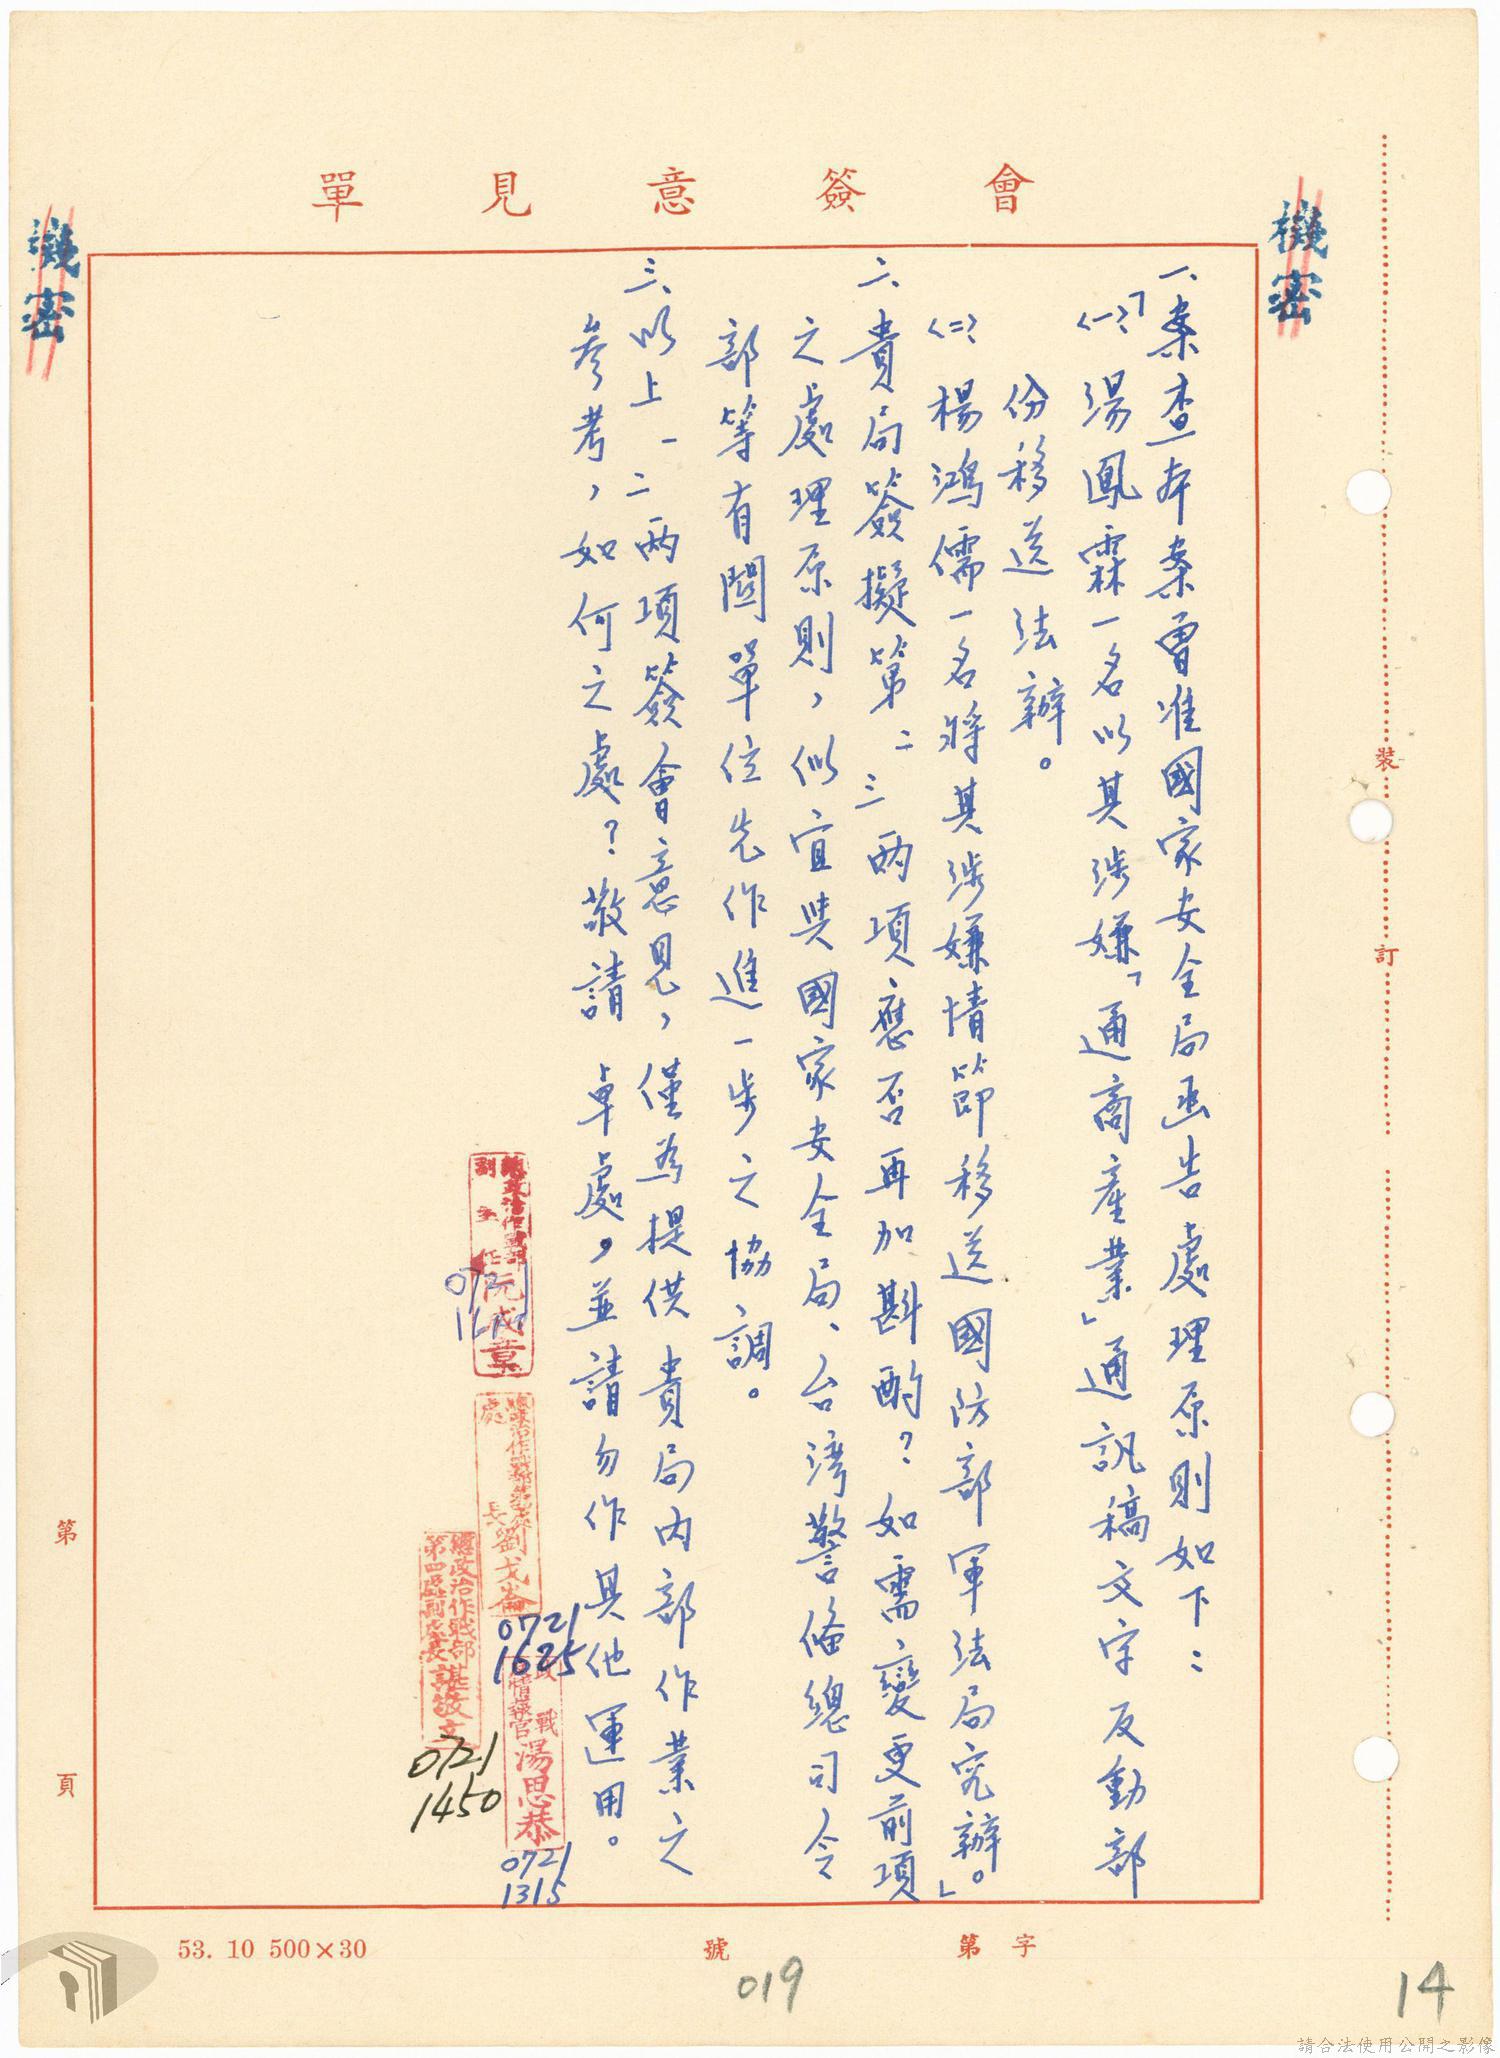 會簽意見單
機密
機密
一、案查本案曾准國家安全局函告處理原則如下：
「㈠湯鳳霖一名以其涉嫌「通商產業」通訊稿文字反動部
份移送法辦。
㈡楊鴻儒一名將其涉嫌情節移送國防部軍法局究辦。」
二、貴局簽擬第二三兩項應否再加斟酌？如需變更前項
之處理原則，似宜與國家安全局、台灣警備總司令
部等有關單位先作進一步之協調。
三、以上一二兩項簽會意見，僅為提供貴局內部作業之
參考，如何之處？敬請 卓處，並請勿作其他運用。
總政治作戰部
副主任 阮成章
處長 劉戈崙
0721
1625
總政治作戰部
第四處副處長 諶敬文
0721
1450
政戰
情報官 湯思恭
0721
1315
裝
訂
第
頁
53. 10 500×30
字第
號
019
14
請合法使用公開之影像